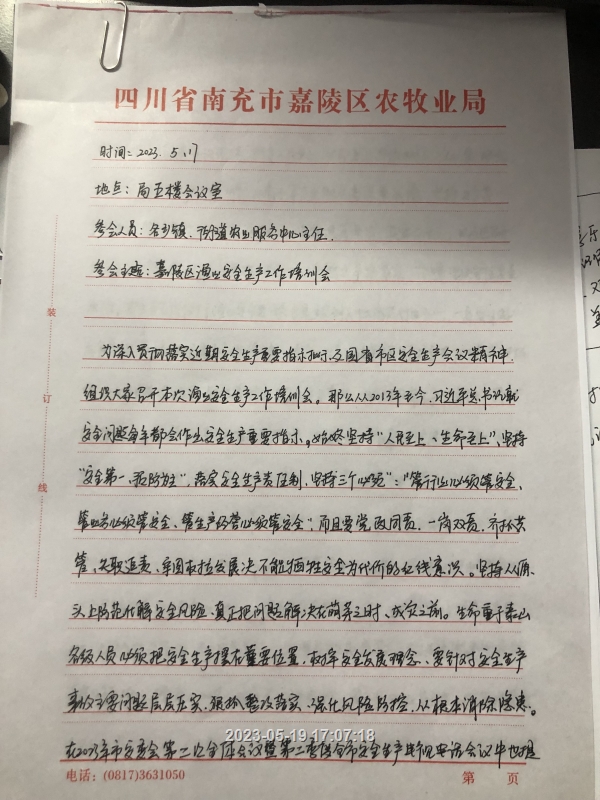 四川省南充市嘉陵区农牧业局
时间:2023.5.17
地点:局五楼会议室
参会人员:各乡镇、街道农业服务中心主任.
参会主题:嘉陵区渔业安全生产工作培训会
为深入贯彻落实近期安全生产重要指示批示及国省市区安全生产会议精神,
组织大家召开本次渔业安全生产工作培训会。那么从2013年至今,习近平总书记就
安全问题每年都会作出安全生产重要指示。始终坚持"人民至上、生命至上",坚持
"安全第一、预防为主",落实安全生产责任制,坚持"三个必须":"管行业必须管安全、
管业务必须管安全、管生产经营必须管安全";而且要党政同责、一岗双责、齐抓共
管、失职追责,牢固树立发展决不能牺牲安全为代价的红线意识。坚持从源
头上防范化解安全风险,真正把问题解决在萌芽之时、成灾之前。生命重于泰山
各级人员必须把安全生产摆在重要位置,树牢安全发展理念,要针对安全生产
事故主要问题层层压实,狠抓整改落实,强化风险防控,从根本消除隐患。
在2023年市安委会第二次全体会议暨第二季度全市安全生产电视电话会议中也提
2023-05-19 17:07:18
电话:(0817)3631050
第 页
装
订
线